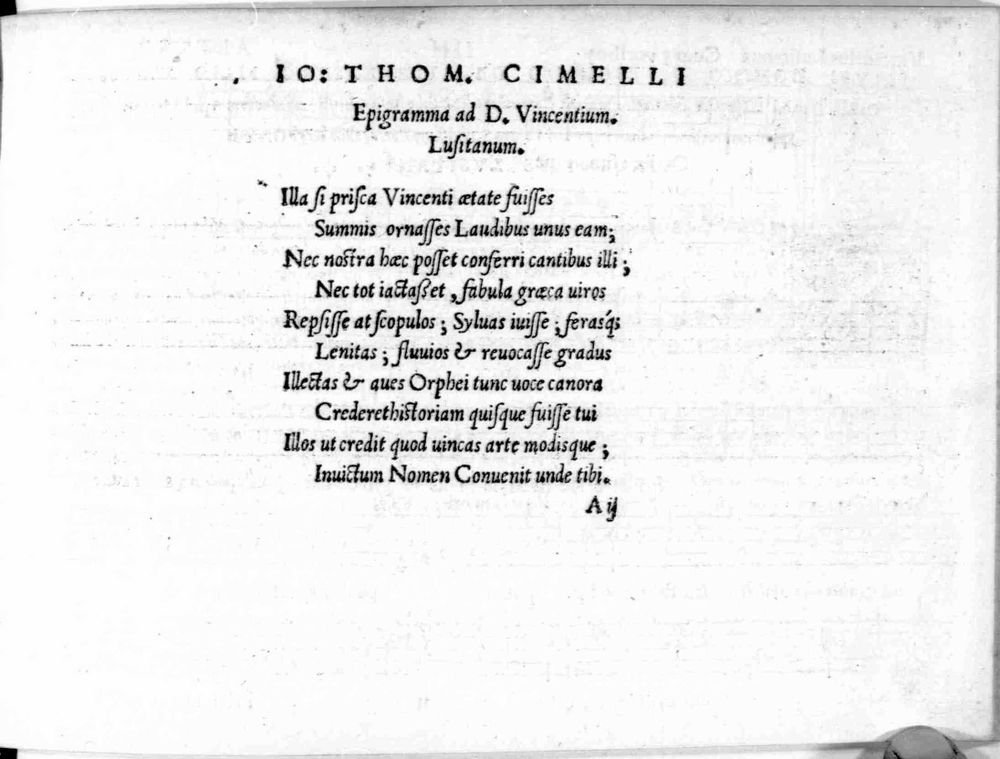 IO: THOM. CIMELLI
Epigramma ad D. Vincentium.
Luſitanum.
Illa ſi priſca Vincenti ætate fuiſſes
Summis ornaſſes Laudibus unus eam;
Nec noſtra hæc poſſet conferri cantibus illi ;
Nec tot iactaſſet , fabula græca uiros
Repſiſſe at ſcopulos ; Syluas iuiſſe ; feraſq́;
Lenitas ; fluuios & reuocaſſe gradus
Illectas & aques Orphei tunc uoce canora
Crederethiſtoriam quiſque fuiſſe tui
Illos ut credit quod uincas arte modisque ;
Inuictum Nomen Conuenit unde tibi.
A ij